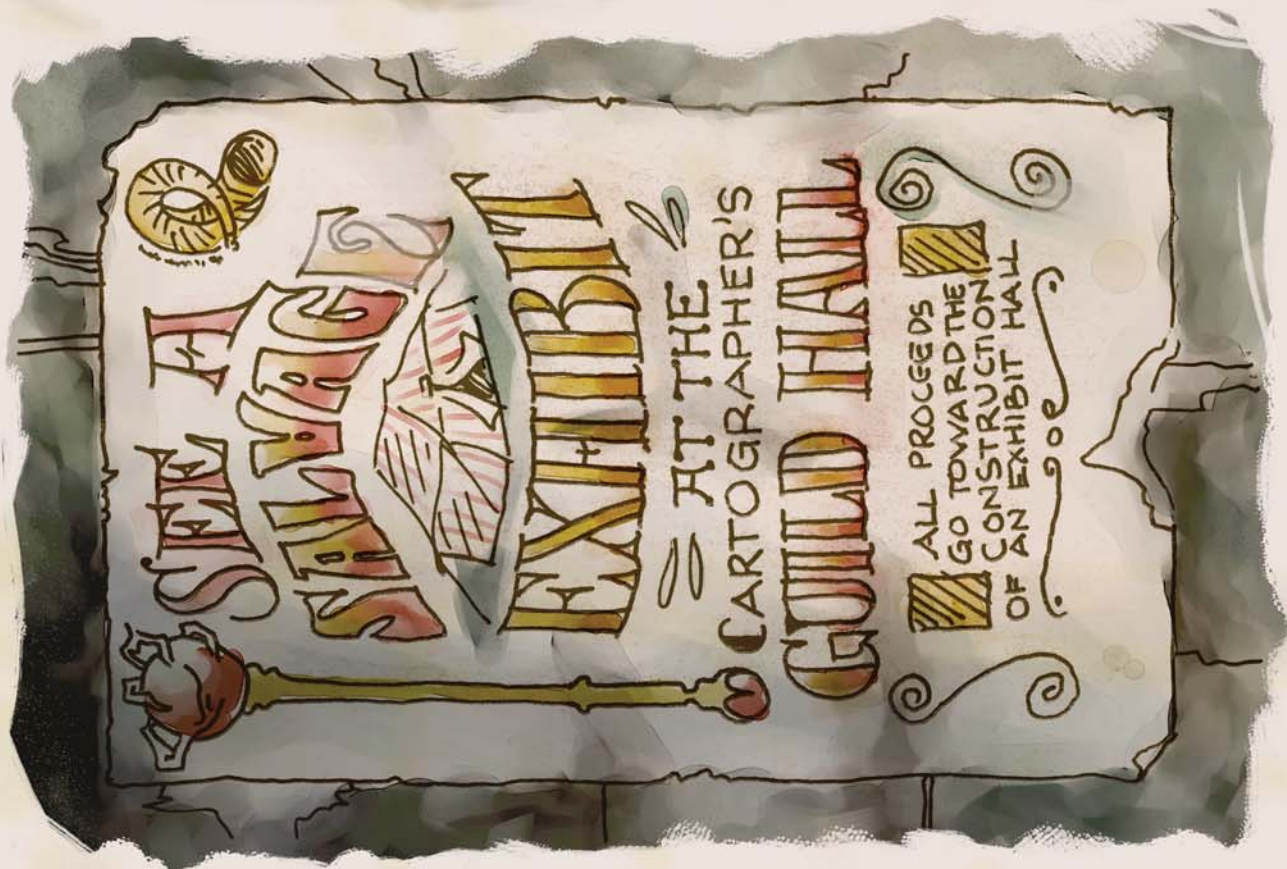 SEE A
SALVAGE
EXHIBIT
AT THE
CARTOGRAPHER'S
GUILD HALL
ALL PROCEEDS
GO TOWARD THE
CONSTRUCTION
OF AN EXHIBIT HALL